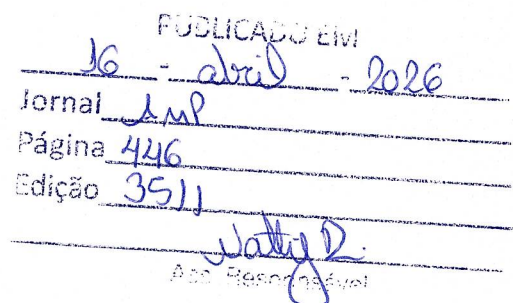 PUBLICADO EM
16 - abril - 2026
Jornal AMP
Página 446
Edição 3511
Natty R.
Ass. Responsável